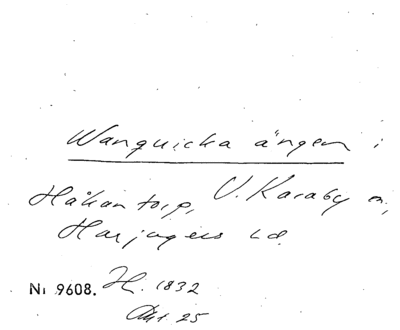 Wanquicka ängen i
Håkantorp, V. Karaby sn,
Harjagers hd.
Nr 9608. H. 1832
Akt 25